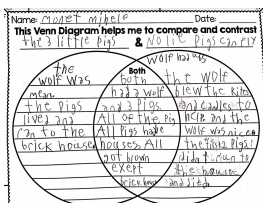 Name: monet mihele Date:
This Venn Diagram helps me to compare and contrast
the 3 little pigs & No lie Pigs can fly
Both
the
wolf was
mean.
the Pigs
lived and
ran to the
brick house
both
had a wolf
and 3 Pigs.
All of the Pig
All Pigs have
houses. All
got blown
exept
brick house
Wolf had wes
the wolf
blew the kites
and candles to
help and the
wolf was nice
the Pigs
didn't run to
the house
and lied